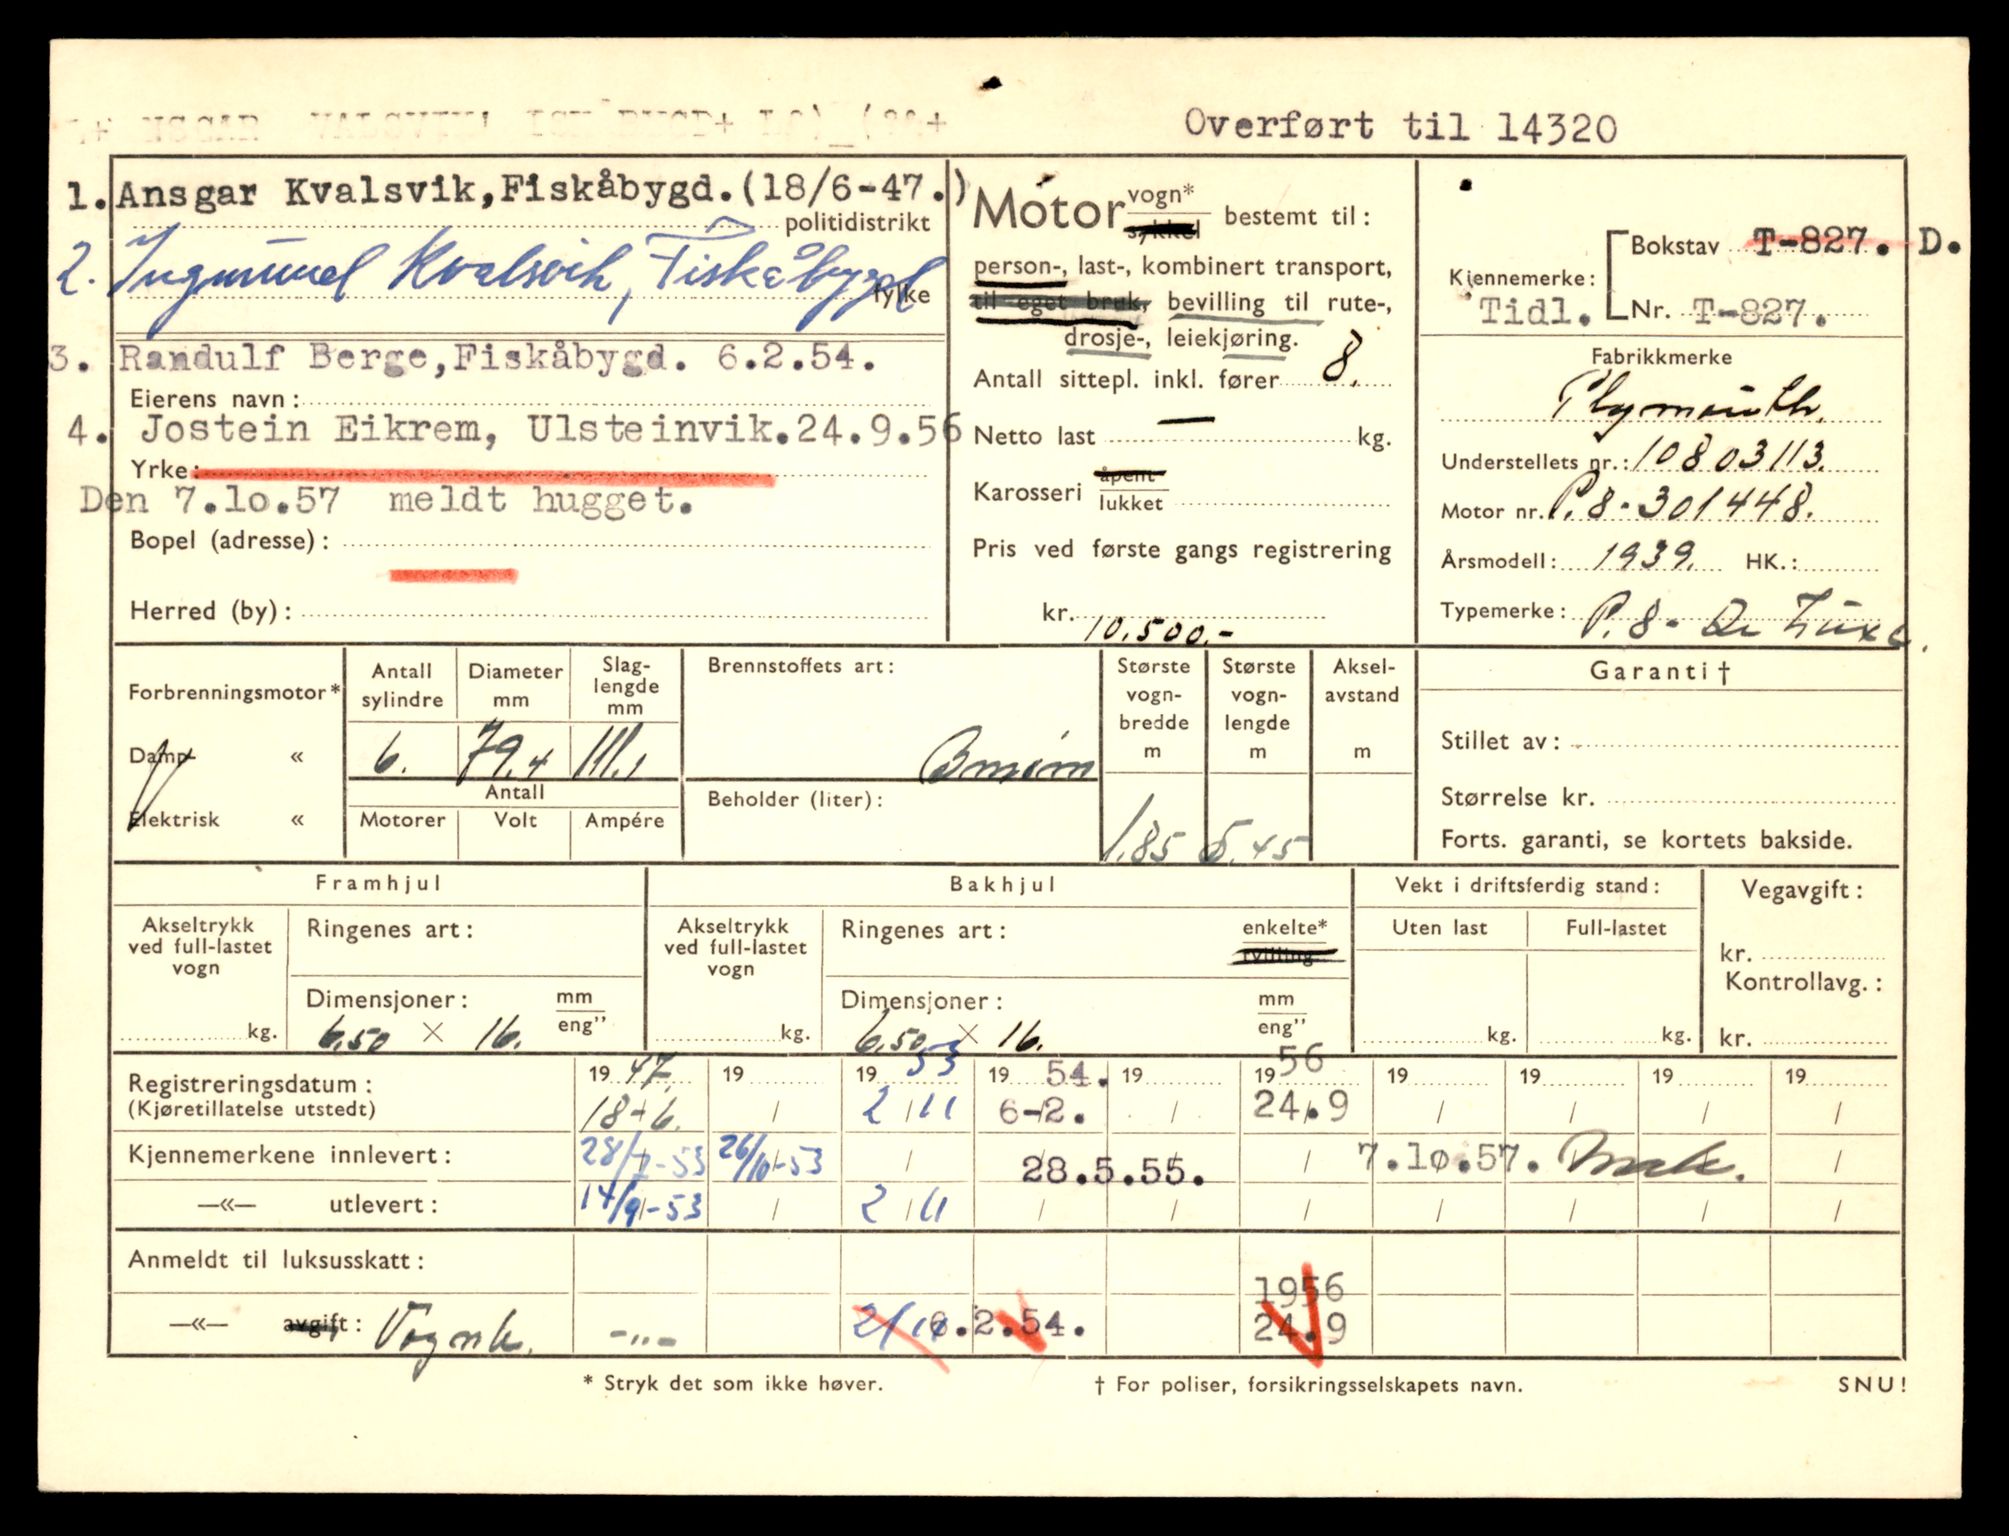 Overført til 14320
1. Ansgar Kvalsvik, Fiskåbygd. (18/6-47.)
politidistrikt
2. Ingmund Kvalsvik, Fiskåbygd
fylke
3. Randulf Berge, Fiskåbygd. 6.2.54.
Eierens navn:
4. Jostein Eikrem, Ulsteinvik. 24.9.56
Yrke:
Den 7.10.57 meldt hugget.
Bopel (adresse):
Herred (by):
Motor vogn* sykkel bestemt til:
person-, last-, kombinert transport,
til eget bruk, bevilling til rute-,
drosje-, leiekjøring.
Antall sittepl. inkl. fører 8.
Netto last — kg.
Karosseri åpent lukket
Pris ved første gangs registrering
kr. 10.500.-
Kjennemerke: Bokstav T-827. D.
Tidl. Nr. T-827.
Fabrikkmerke
Plymouth.
Understellets nr.: 10803113.
Motor nr. P.8-301448.
Årsmodell: 1939. HK.:
Typemerke: P.8- De Luxe.
Forbrenningsmotor*
Damp «
Elektrisk «
Antall sylindre
Diameter mm
Slaglengde mm
6. 79.4 111.1
Antall
Motorer Volt Ampére
Brennstoffets art:
Beholder (liter):
Største vognbredde m
Største vognlengde m
Akselavstand m
1.85 5.45
Garanti †
Stillet av:
Størrelse kr.
Forts. garanti, se kortets bakside.
Framhjul
Akseltrykk ved full-lastet vogn
kg.
Ringenes art:
Dimensjoner: mm eng”
6.50 × 16.
Bakhjul
Akseltrykk ved full-lastet vogn
kg.
Ringenes art: enkelte* tvilling
Dimensjoner: mm eng”
6.50 × 16.
Vekt i driftsferdig stand:
Uten last Full-lastet
kg. kg.
Vegavgift:
kr.
Kontrollavg.:
kr.
Registreringsdatum: 19 47. 19 19 53 19 54. 19 19 56 19 19 19 19
(Kjøretillatelse utstedt) 18-6. / 2/11 6-2. / 24.9 / / / /
Kjennemerkene innlevert: 26/10-53 / 28.5.55. / 7.10.57. /
—«— utlevert: 14/9-53 / 2/11 / / / / / / /
Anmeldt til luksusskatt:
1956
—«— avgift: -"- 6.2.54. 24.9
* Stryk det som ikke høver.
† For poliser, forsikringsselskapets navn.
SNU!